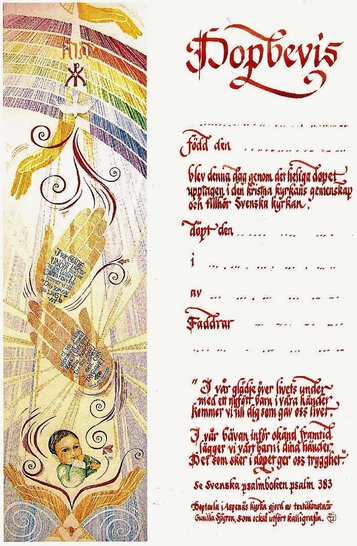 Dopbevis
född den
blev denna dag genom det heliga dopet
upptagen i den kristna kyrkans gemenskap
och tillhör Svenska kyrkan.
döpt den
i
av
Faddrar
"I vår glädje över livets under
med ett nyfött barn i våra händer
kommer vi till dig som gav oss livet.
I vår bävan inför okänd framtid
lägger vi vårt barn i dina händer.
Det som sker i dopet ger oss trygghet."
Se Svenska psalmboken psalm 383
Doptavla i Aspenäs kyrka gjord av textilkonstnär
Gunilla Sjögren, som också utfört kalligrafin.